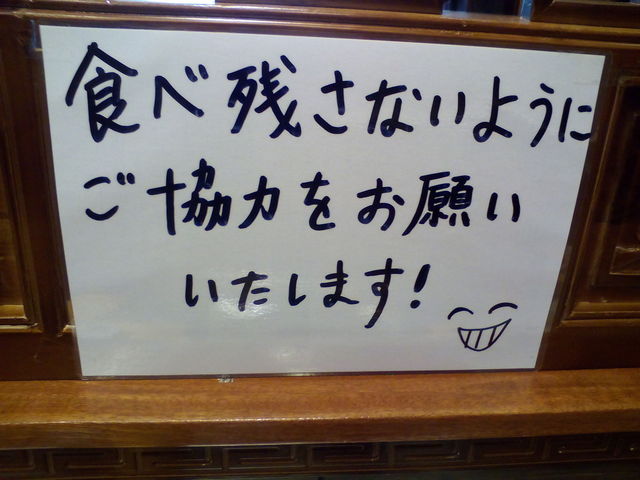 食べ残さないように
ご協力をお願い
いたします!